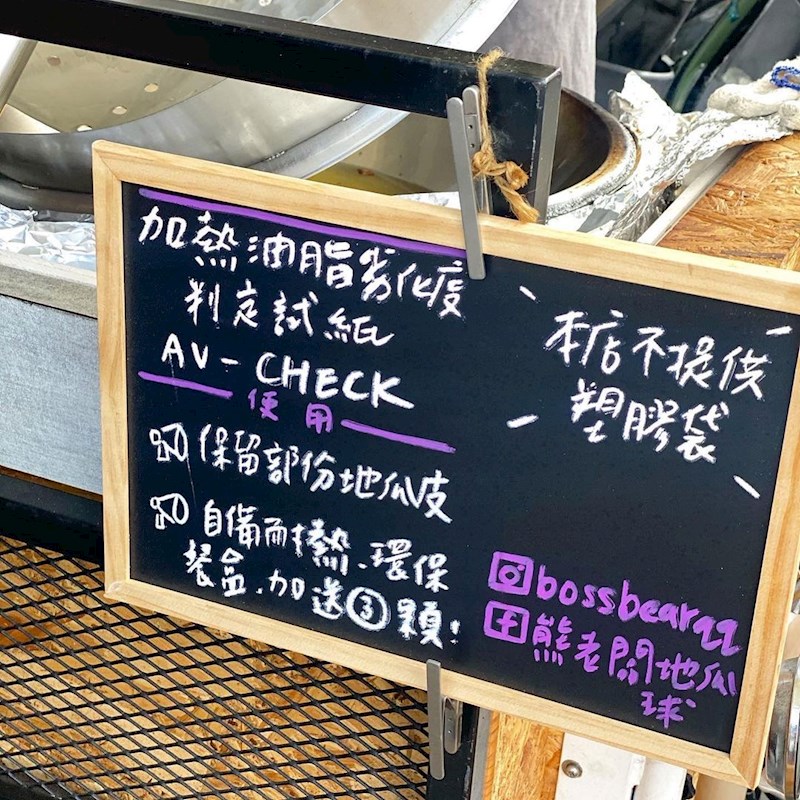 加熱油脂劣化度
判定試紙
AV-CHECK
使用
保留部份地瓜皮
自備耐熱、環保
餐盒、加送③顆!
本店不提供
塑膠袋
bossbearqq
熊老闆地瓜
球